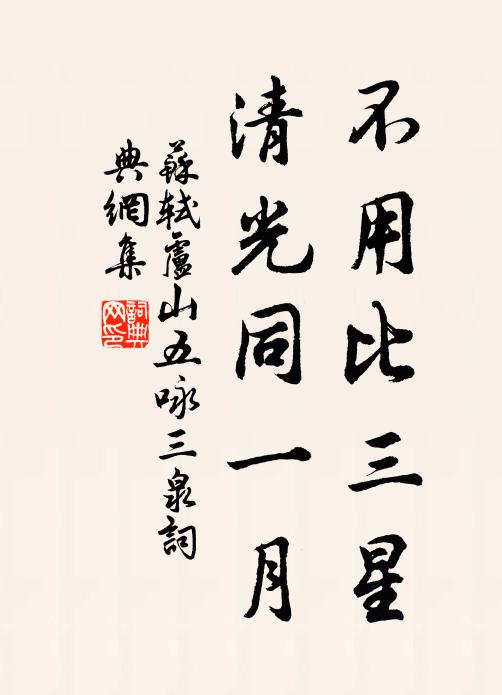 不用比三星
清光同一月
蘇軾廬山五咏三泉詞
典網集
詞典網印